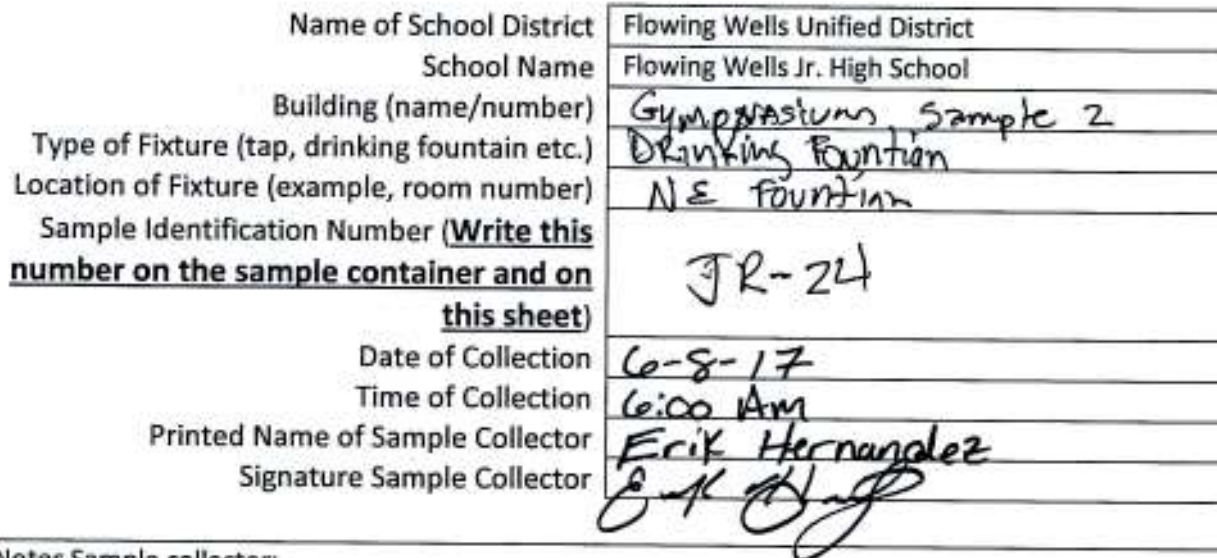 Name of School District Flowing Wells Unified District
School Name Flowing Wells Jr. High School
Building (name/number) Gympnasium, Sample 2
Type of Fixture (tap, drinking fountain etc.) Drinking Fountian
Location of Fixture (example, room number) NE Fountian
Sample Identification Number (Write this
number on the sample container and on
this sheet) JR-24
Date of Collection 6-8-17
Time of Collection 6:00 Am
Printed Name of Sample Collector Erik Hernandez
Signature Sample Collector
Notes Sample collector: